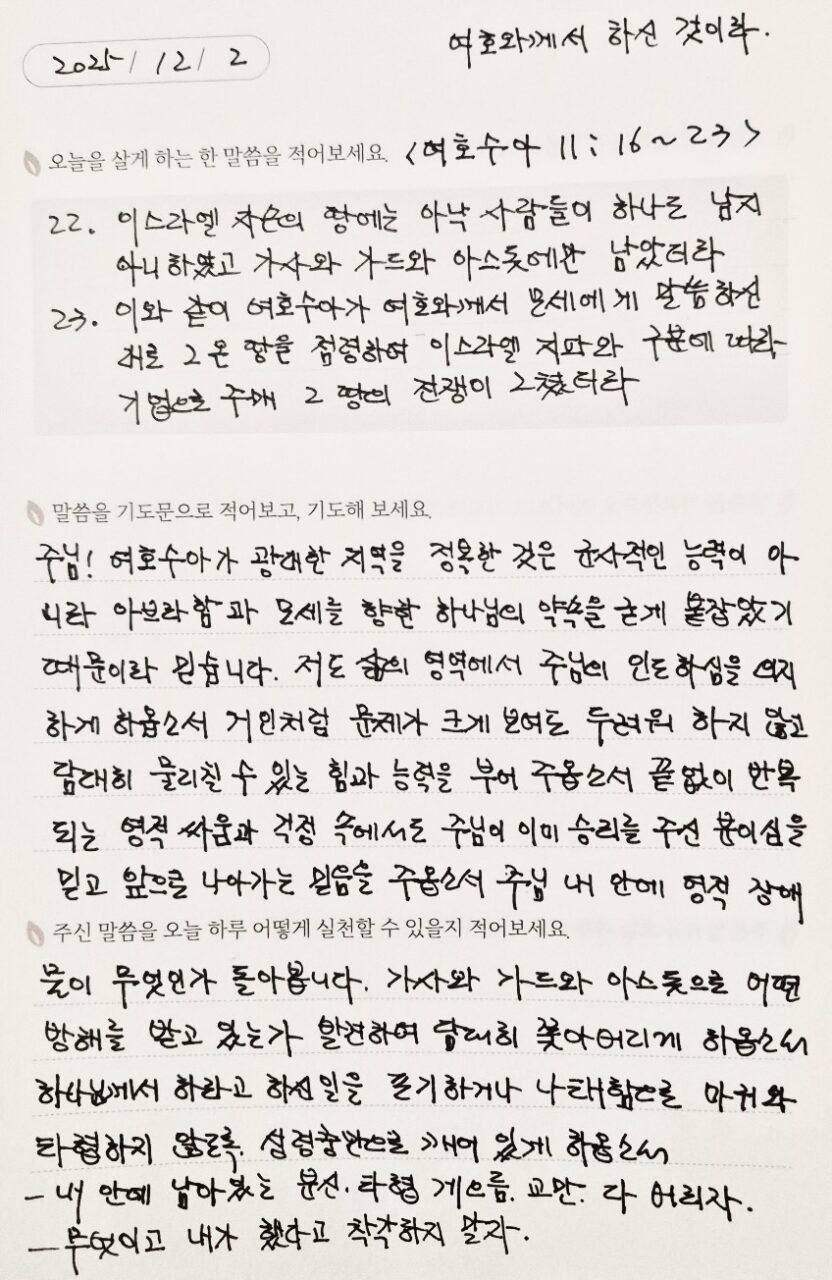 여호와께서 하신 것이라.
2025/ 12/ 2
오늘을 살게 하는 한 말씀을 적어보세요. <여호수아 11: 16~23>
22. 이스라엘 자손의 땅에는 아낙 사람들이 하나도 남지
아니하였고 가사와 가드와 아스돗에만 남았더라
23. 이와 같이 여호수아가 여호와께서 모세에게 말씀하신
대로 그 온 땅을 점령하여 이스라엘 지파와 구분에 따라
기업으로 주매 그 땅의 전쟁이 그쳤더라
말씀을 기도문으로 적어보고, 기도해 보세요.
주님! 여호수아가 광대한 지역을 정복한 것은 군사적인 능력이 아
니라 아브라함과 모세를 향한 하나님의 약속을 굳게 붙잡았기
때문이라 믿습니다. 저도 삶의 영역에서 주님의 인도하심을 의지
하게 하옵소서 거인처럼 문제가 크게 보여도 두려워 하지 않고
담대히 물리칠 수 있는 힘과 능력을 부어 주옵소서 끝없이 반복
되는 영적 싸움과 걱정 속에서도 주님이 이미 승리를 주신 분이심을
믿고 앞으로 나아가는 믿음을 주옵소서 주님 내 안에 영적 장애
주신 말씀을 오늘 하루 어떻게 실천할 수 있을지 적어보세요.
물이 무엇인가 돌아봅니다. 가사와 가드와 아스돗으로 어떤
방해를 받고 있는가 발견하여 담대히 쫓아버리게 하옵소서
하나님께서 하라고 하신일을 포기하거나 나태함으로 마귀와
타협하지 않도록. 성령충만으로 깨어 있게 하옵소서
- 내 안에 남아있는 불신. 타협 게으름. 교만. 다 버리자.
- 무엇이고 내가 했다고 착각하지 말자.